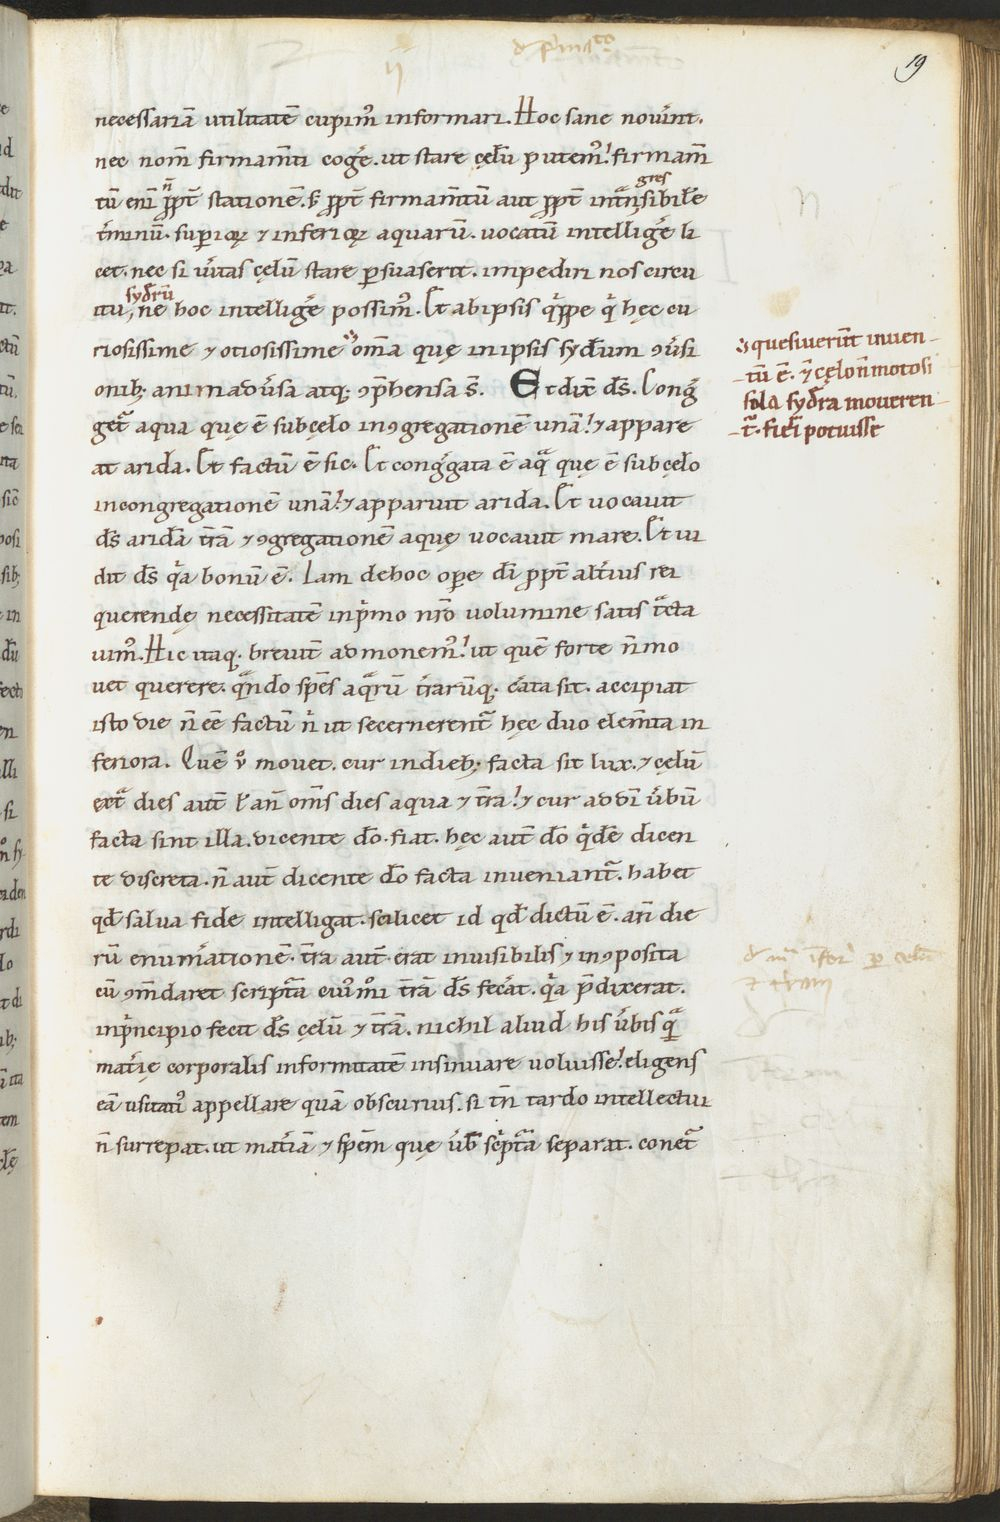 19
necessariā utilitatē cupim᷒ informari. Hoc sane nov͛int.
nec nom̄ firmam̄ti coge͛. ut stare cęlū putem᷒! firmam̄
tū eni n̄ ꝓpt̄ stationē. s; ꝓpt̄ firmam̄tū aut ꝓpt̄ intͣnsgresibile
t͛minū. superioꝝ ⁊ inferioꝝ aquarū. vocatū intellige͛ li
cet. nec si v͛itas cęlū stare ꝑsuaserit. impediri nos circu
itu sydꝝ̄, ne hoc intellige͛ possim᷒. Et ab ipsis qͥppe qͥ hęc cu
riosissime ⁊ otiosissime om̄a quę in ipsis syd͛um ꝯv͛si
onib; animadv͛sa atq; ꝯp̄hensa s̄. Et dix̄ d̄s. Cong͛
getͣ aqua quę ē sub cęlo in ꝯgregationē unā! ⁊ appare
at arida. Et factū ē sic. Et cong͛gata ē aqͣ quę ē sub cęlo
in congregationē unā! ⁊ apparuit arida. Et vocavit
d̄s aridā tr̄ā ⁊ ꝯgregationē aquę vocavit mare. Et vi
dit d̄s qͥa bonū ē. Iam de hoc oꝑe d̄i ꝓpt̄ alt͛ius rei
querendę necessitatē in pͥmo nr̄o volumine satis tͣcta
vim᷒. Hic itaq; brevit͛ admonem᷒! ut quē forte n̄ mo
vet querere. qͣndo spēs aqͣrū tr̄arūq; c͛ata sit. accipiat
isto die n̄ ēē factū nͥ ut secernerentͣ hęc duo elem̄ta in
feriora. Quē v̊ movet. cur in dieb; facta sit lux. ⁊ cęlū
extͣ dies aut̄ l̄ an̄ om̄s dies aqua ⁊ tr̄a! ⁊ cur ad d̄i v͛bū
facta sint illa. dicente d̄o. fiat. hęc aut̄ d̄o qͥdē dicen
te discreta. n̄ aut̄ dicente d̄o facta inveniantͣ. habet
qd̄ salva fide intelligat. scilicet id qd̄ dictū ē. an̄ die
rū enum͛ationē. tr̄a aut̄ erat invisibilis ⁊ inꝯposita
cū ꝯm̄daret scriptͣa cui᷒m̊i tr̄ā d̄s fec͛at. qͥa p̄dixerat.
in pͥncipio fecit d̄s cęlū ⁊ tr̄ā. nichil aliud his v͛bis qͣ
mat͛ię corporalis informitatē insinuare voluisse! eligens
eā usitati᷒ appellare quā obscurius. si tn̄ tardo intellectui
n̄ surrepat. ut mat͛iā ⁊ spēm quę v͛b̄ scͥptͣa separat. conetͣ
quesiverūt inven-
-tū ē. ⁊ cęlo n̄ moto si
sola syd͛ra moveren-
-tͣ. fieri potuisse